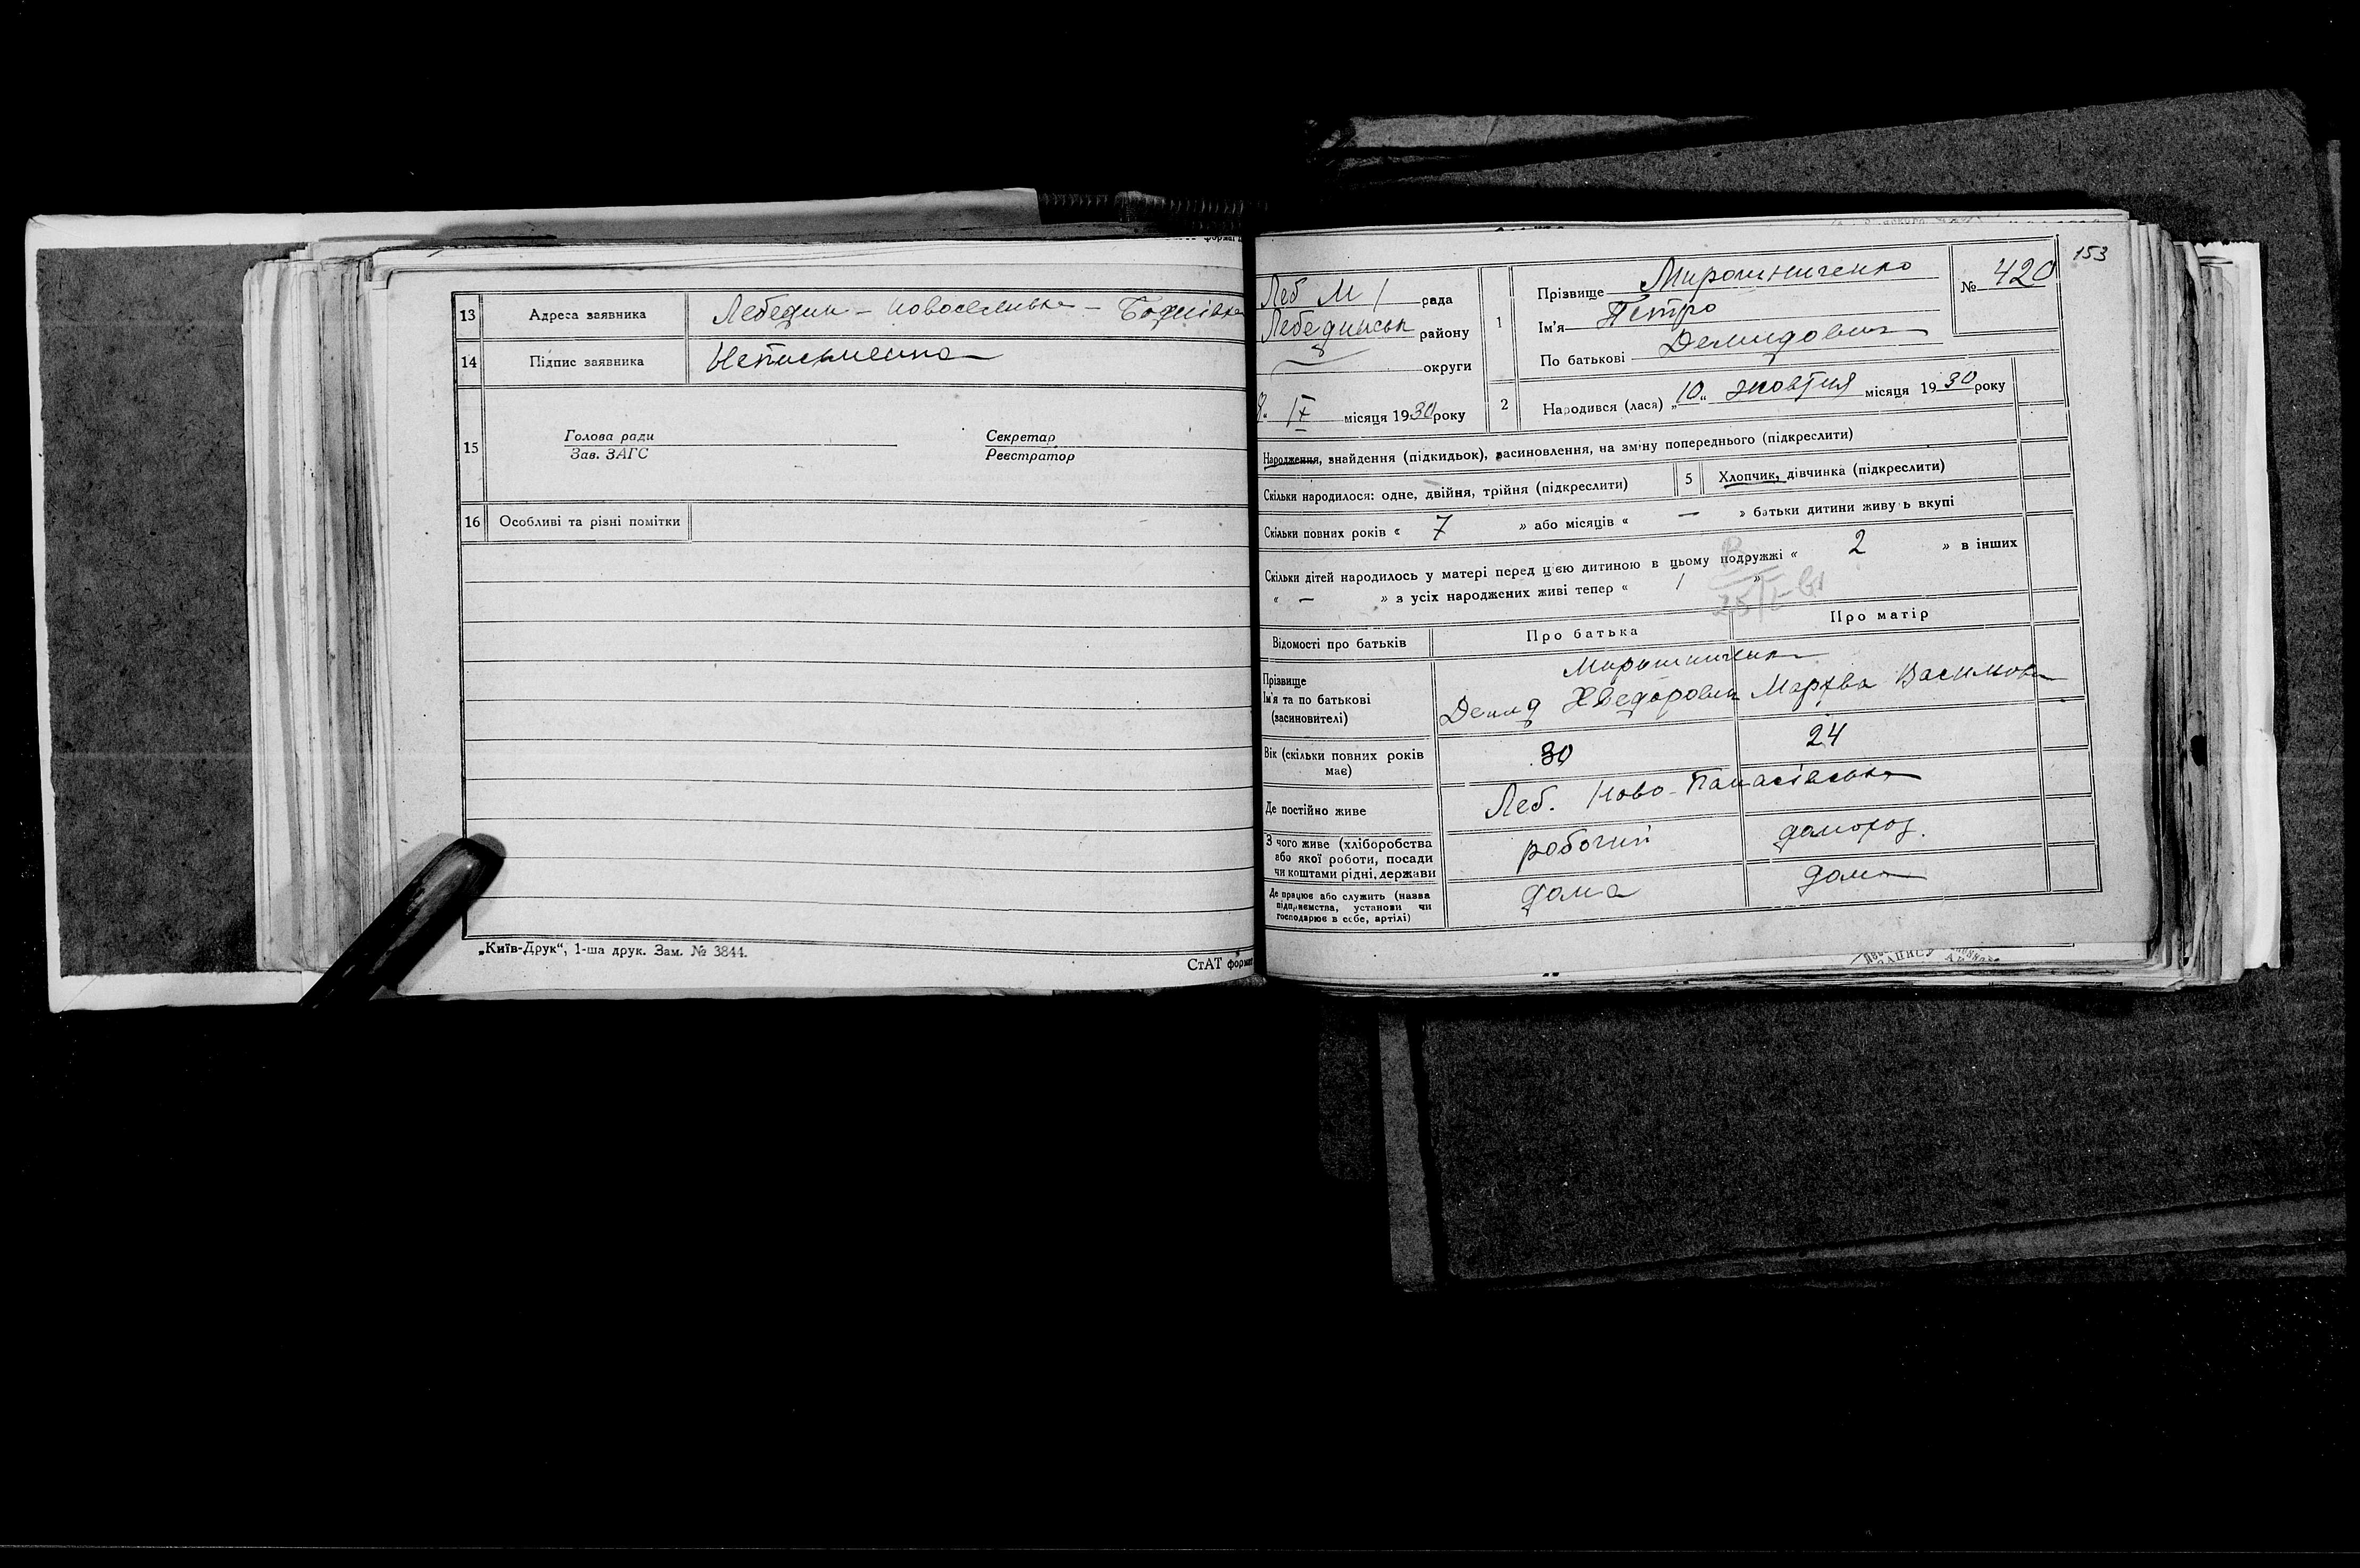 13 Адреса заявника Лебедин – Новоселивка –
14 Підпис заявника Неписьменна
15 Голова ради Секретар
Зав. ЗАГС Реєстратор
16 Особливі та різні помітки
„Київ-Друк“, 1-ша друк. Зам. № 3844.
СтАТ формат
153
Леб М 1 рада
Лебединськ району
округи
ІХ місяця 1930 року
1 Прізвище Мирошниченко
Ім'я Петро
По батькові Демидович
№ 420
2 Народився (лася) „10“ жовтня місяця 1930 року
Народження, знайдення (підкидьок), засиновлення, на зміну попереднього (підкреслити)
Скільки народилося: одне, двійня, трійня (підкреслити) 5 Хлопчик, дівчинка (підкреслити)
Скільки повних років « 7 » або місяців « — » батьки дитини живуть вкупі
Скільки дітей народилось у матері перед цією дитиною в цьому подружжі « 2 » в інших
« — » з усіх народжених живі тепер « 1 »
Відомості про батьків Про батька Про матір
Прізвище
Ім'я та по батькові
(засиновителі)
Мирошниченко
Демид Хведорович Василівна
Вік (скільки повних років має) 30 24
Де постійно живе Леб. Ново-Панасівська
З чого живе (хліборобства або якої роботи, посади чи коштами рідні, держави робочий домогос.
Де працює або служить (назва підприємства, установи чи господарює в себе, артілі) дома дома